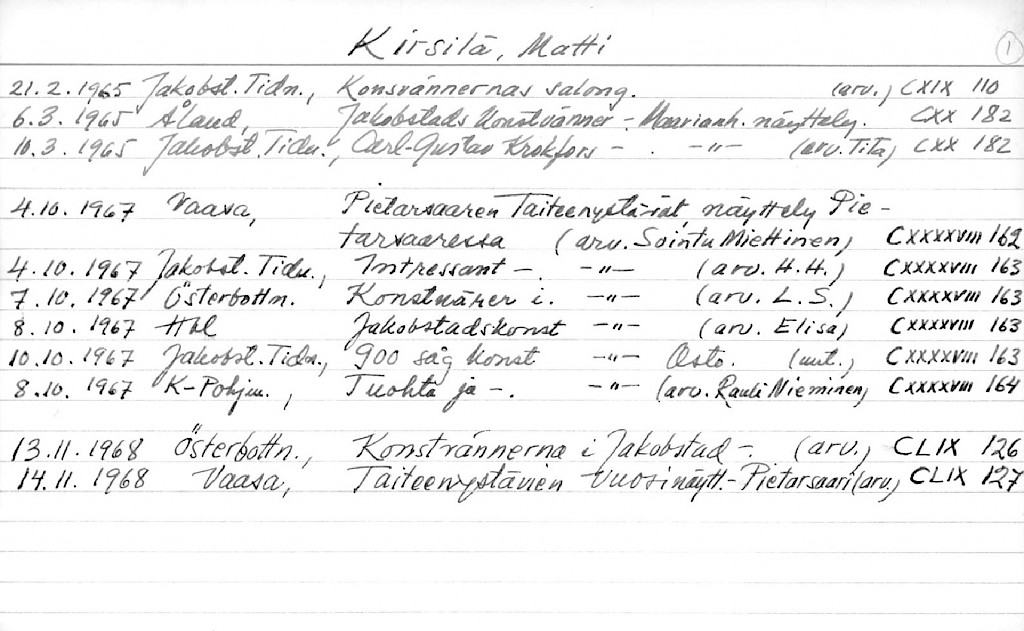 Kirsilä, Matti 1
21.2.1965 Jakobst. Tidn., Konsvännernas salong. (arv.) CXIX 110
6.3.1965 Åland, Jakobstads Konstvänner - Maarianh. näyttely. CXX 182
10.3.1965 Jakobst. Tidn., Carl-Gustav Krokfors - . -"- (arv. Tita) CXX 182
4.10.1967 Vaasa, Pietarsaaren Taiteenystävät, näyttely Pie-
tarsaaressa (arv. Sointu Miettinen) CXXXXVIII 162
4.10.1967 Jakobst. Tidn., Intressant - . -"- (arv. H.H.) CXXXXVIII 163
7.10.1967 Österbottn. Konstnärer i. -"- (arv. L.S.) CXXXXVIII 163
8.10.1967 Hbl Jakobstadskonst -"- (arv. Elisa) CXXXXVIII 163
10.10.1967 Jakobst. Tidn., 900 såg konst -"- Osto. (uut.) CXXXXVIII 163
8.10.1967 K-Pohjm., Tuohta ja - . -"- (arv. Rauli Nieminen) CXXXXVIII 164
13.11.1968 Österbottn., Konstvännerna i Jakobstad - . (arv.) CLIX 126
14.11.1968 Vaasa, Taiteenystävien vuosinäytt. - Pietarsaari (arv.) CLIX 127